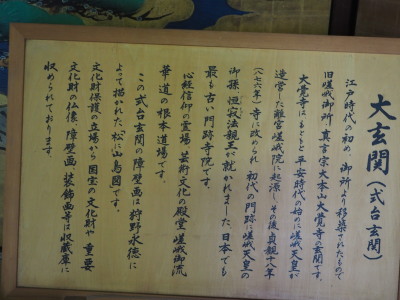 大玄関（式台玄関）
江戸時代の初め 御所より移築されたもので
旧嵯峨御所 真言宗 大本山大覚寺の玄関です。
大覚寺はもともと 平安時代の始めに嵯峨天皇が
造営した離宮嵯峨院に起源し、その後 貞観十八年
（八七六年）寺に改められ 初代の門跡に嵯峨天皇の
御孫 恒寂法親王が就かれました。日本でも
最も古い門跡寺院です。
心経信仰の霊場 芸術文化の殿堂 嵯峨御流
華道の根本道場です。
この式台玄関の障壁画は 狩野永徳に
よって描かれた「松に山鳥図」です。
文化財保護の立場から 国宝の文化財や 重要
文化財の仏像、障壁画、装飾画等は収蔵庫に
収められております。